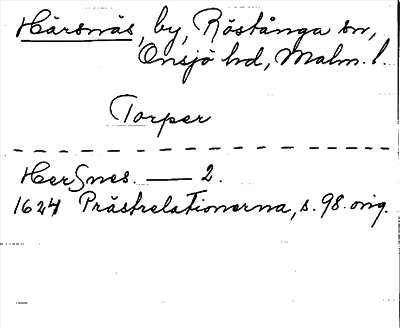 Härsnäs, by, Röstånga sn,
Onsjö hd, Malm. l.
Torper
HerSnes. — 2.
1624 Prästrelationerna, s. 98. orig.